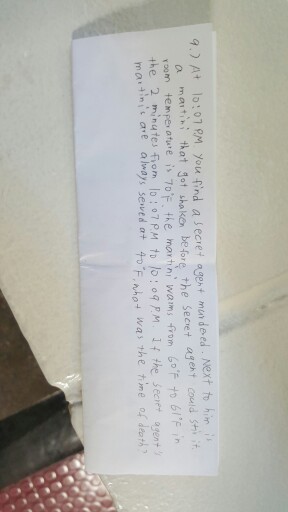 9.) At 10:07 PM you find a secret agent murdered. Next to him is
a martini that got shaken before the secret agent could stir it.
room temperature is 70°F. the martini warms from 60°F to 61°F in
the 2 minutes from 10:07 PM to 10:09 P.M If the secret agent's
martinis are always served at 40°F, what was the time of death?